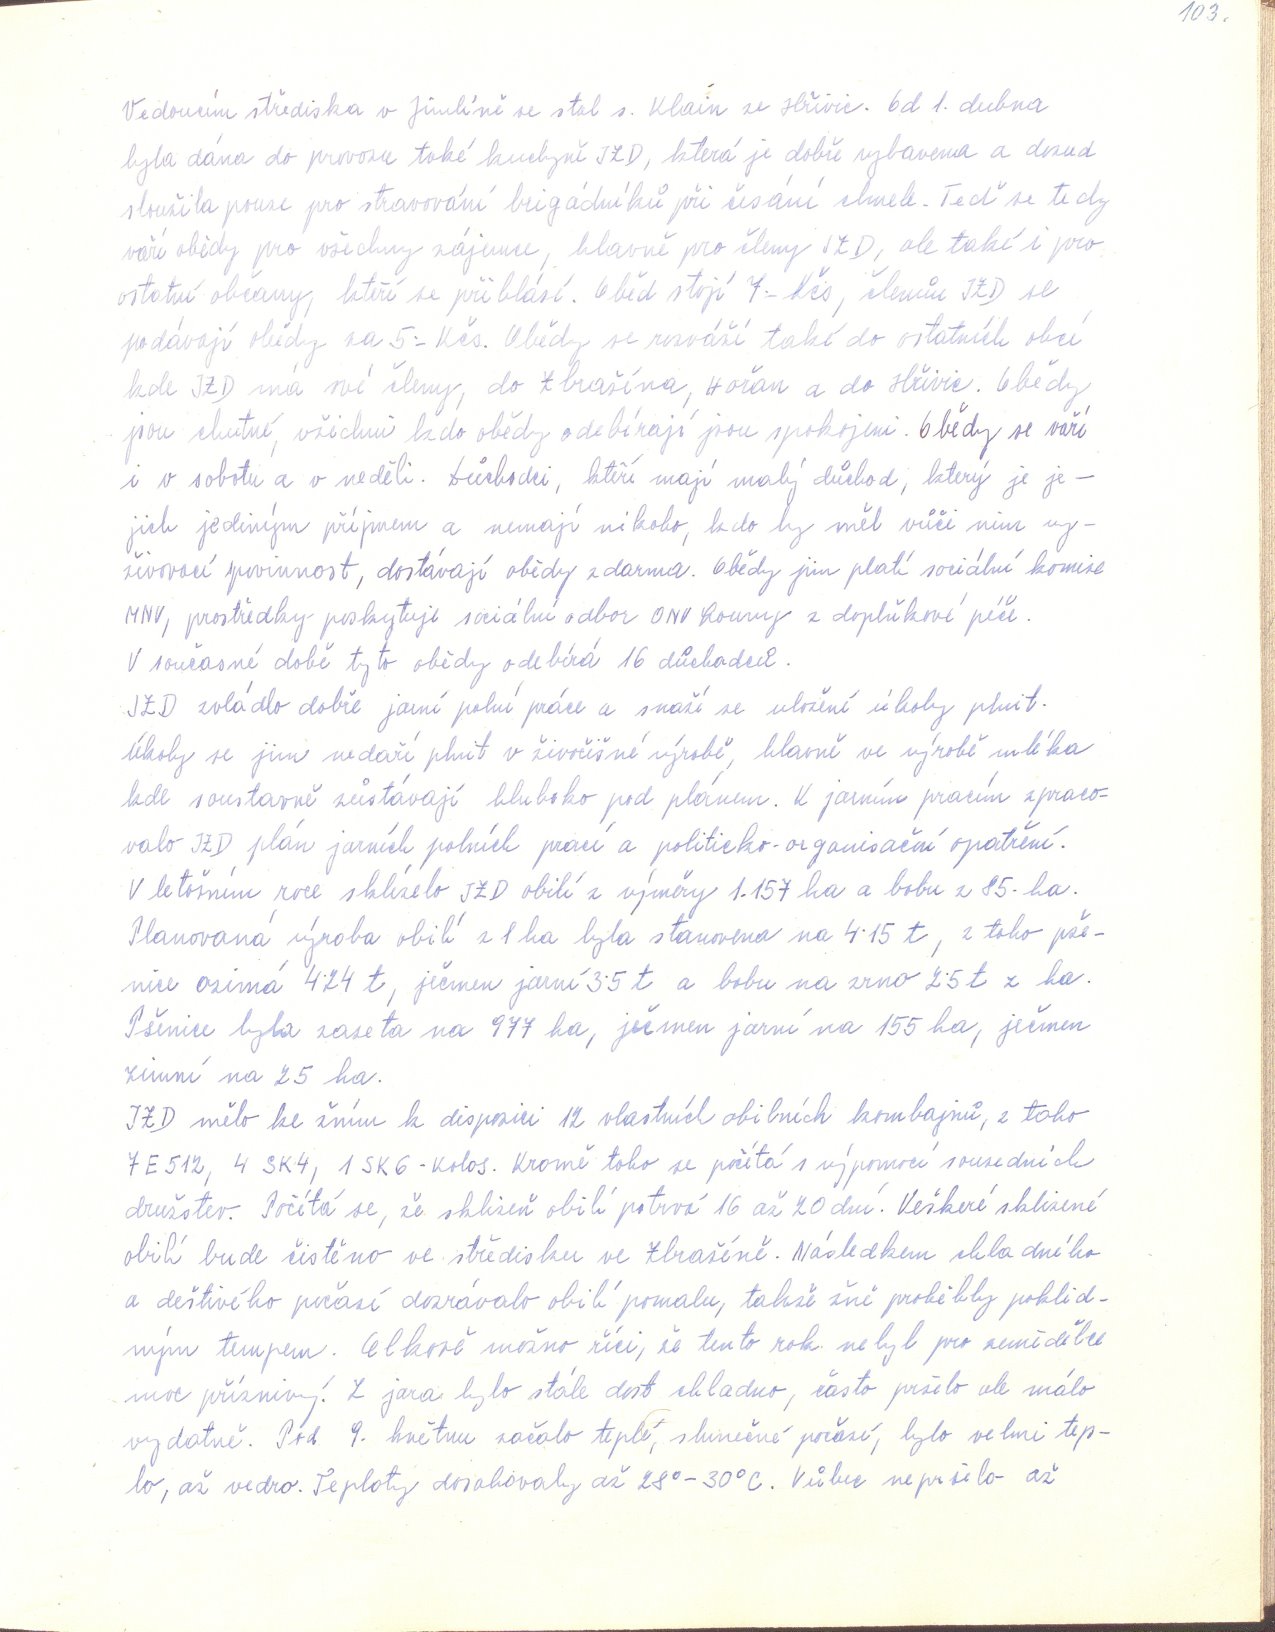 103.
Vedoucím střediska v Jimlíně se stal s. Klain ze Hřivic. Od 1. dubna
byla dána do provozu také kuchyně JZD, která je dobře vybavena a dosud
sloužila pouze pro stravování brigádníků při česání chmele. Teď se tedy
vaří obědy pro všechny zájemce, hlavně pro členy JZD, ale také i pro
ostatní občany, kteří se přihlásí. Oběd stojí 7.- Kčs, členům JZD se
podávají obědy za 5.- Kčs. Obědy se rozváží také do ostatních obcí
kde JZD má své členy, do Zbrašína, Hořan a do Hřivic. Obědy
jsou chutné, všichni kdo obědy odebírají jsou spokojeni. Obědy se vaří
i v sobotu a v neděli. Důchodci, kteří mají malý důchod, který je je-
jich jediným příjmem a nemají nikoho, kdo by měl vůči nim vy-
živovací povinnost, dostávají obědy zdarma. Obědy jim platí sociální komise
MNV, prostředky poskytuje sociální odbor ONV Louny z doplňkové péče.
V současné době tyto obědy odebírá 16 důchodců.
JZD zvládlo dobře jarní polní práce a snaží se uložené úkoly plnit.
Úkoly se jim nedaří plnit v živočišné výrobě, hlavně ve výrobě mléka
kde soustavně zůstávají hluboko pod plánem. K jarním pracím zpraco-
valo JZD plán jarních polních prací a politicko-organisační opatření.
V letošním roce sklízelo JZD obilí z výměry 1.157 ha a bobu z 85.ha.
Planovaná výroba obilí z 1 ha byla stanovena na 4.15 t, z toho pše-
nice ozimá 4.24 t, ječmen jarní 3.5 t a bobu na zrno 2.5 t z ha.
Pšenice byla zaseta na 977 ha, ječmen jarní na 155 ha, ječmen
zimní na 25 ha.
JZD mělo ke žním k dispozici 12 vlastních obilních kombajnů, z toho
7 E 512, 4 SK4, 1 SK6 - Kolos. Kromě toho se počítá s výpomocí sousedních
družstev. Počítá se, že sklizeň obilí potrvá 16 až 20 dní. Veškeré sklizené
obilí bude čistěno ve středisku ve Zbrašíně. Následkem chladného
a deštivého počasí dozrávalo obilí pomalu, takže žně proběhly poklid-
ným tempem. Celkově možno říci, že tento rok nebyl pro zemědělce
moc příznivý. Z jara bylo stále dost chladno, často pršelo ale málo
vydatně. Pod 9. květnu začalo teplé, slunečné počasí, bylo velmi tep-
lo, až vedro. Teploty dosahovaly až 28°-30°C. Vůbec nepršelo až